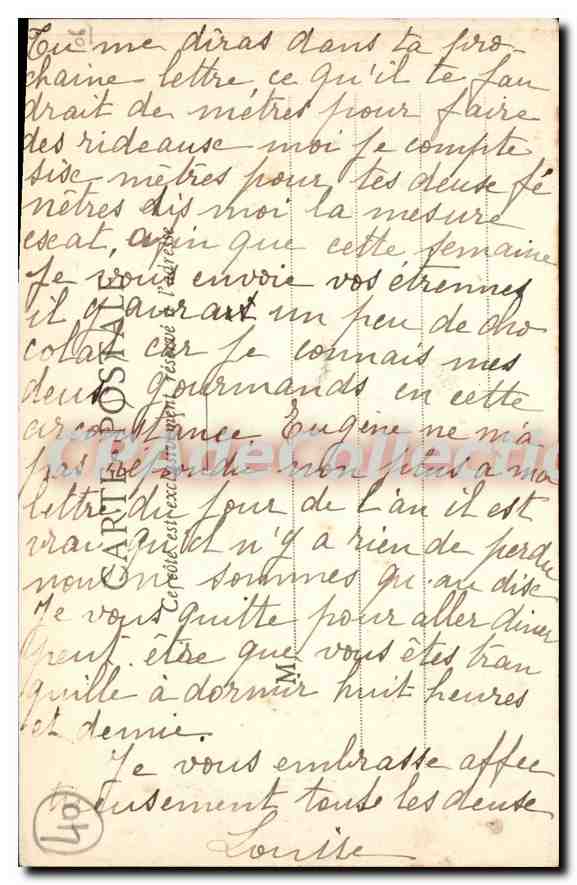 Tu me diras dans ta pro-
chaine lettre ce qu'il te fau
drait de mètres pour faire
des rideause moi je compte
sise mètres pour tes deuse fé
nêtres dis moi la mesure
escat, afin que cette semaine
Je vous envoie vos étrennes
il y aurat un peu de cho
colat car je connais mes
deus gourmands en cette
circonstance. Eugène ne m'a
pas répondu non plus a ma
lettre du jour de l'an il est
vrai qu'il n'y a rien de perdu
nous ne sommes qu'au dise
Je vous quitte pour aller diner
peut être que vous êtes tran
quille à dormir huit heures
et demie.
Je vous embrasse affec
tueusement touse les deuse
Louise
CARTE POSTALE
Ce côté est exclusivement réservé à l'adresse
M
40
06
CParteCollection